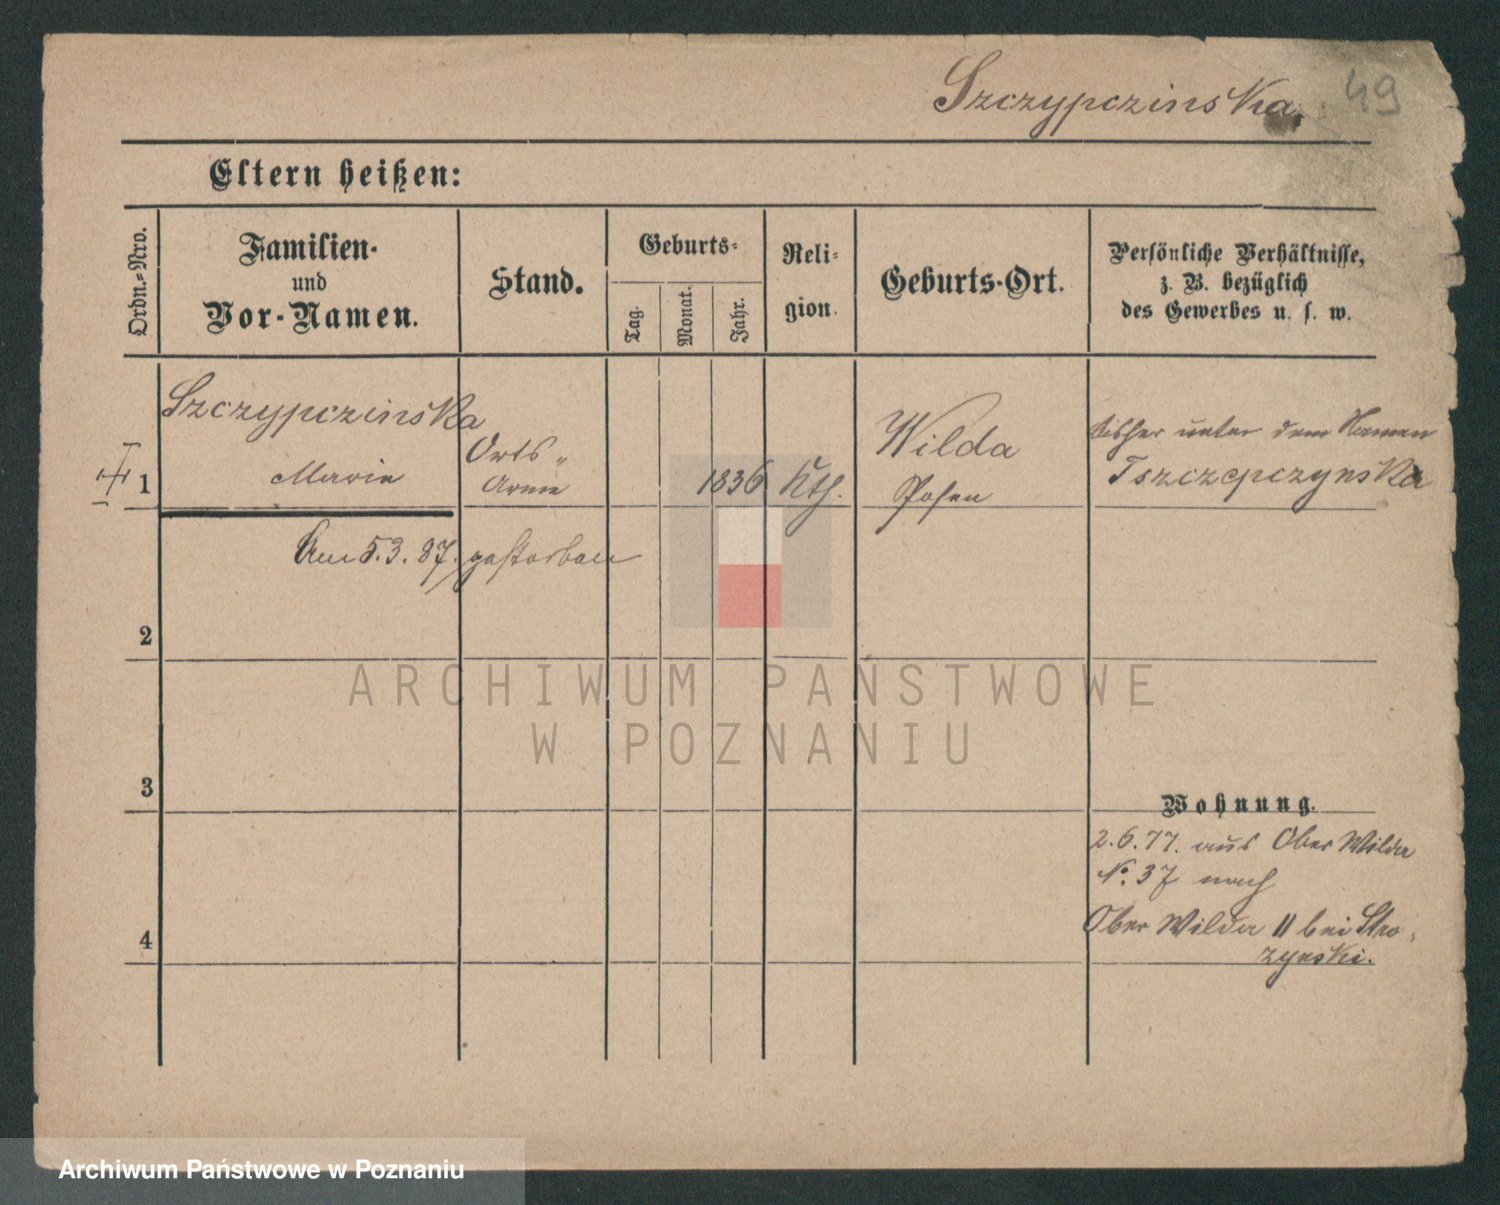 Szczypczinska.
49
Eltern heißen:
Ordn.-Nro.
Familien-
und
Vor-Namen.
Stand.
Geburts-
Tag.
Monat.
Jahr.
Reli-
gion.
Geburts-Ort.
Persönliche Verhältnisse,
z. B. bezüglich
des Gewerbes u. s. w.
1
Szczypczinska
Marie
Orts-
Arme
1836
Kth.
Wilda
Posen
bisher unter dem Namen
Tszczepczynska
Am 5.3.87. gestorben
2
3
4
Wohnung.
2.6.77. aus Ober Wilda
No. 37 nach
Ober Wilda 11 bei Stro-
zynski.
ARCHIWUM PAŃSTWOWE
W POZNANIU
Archiwum Państwowe w Poznaniu